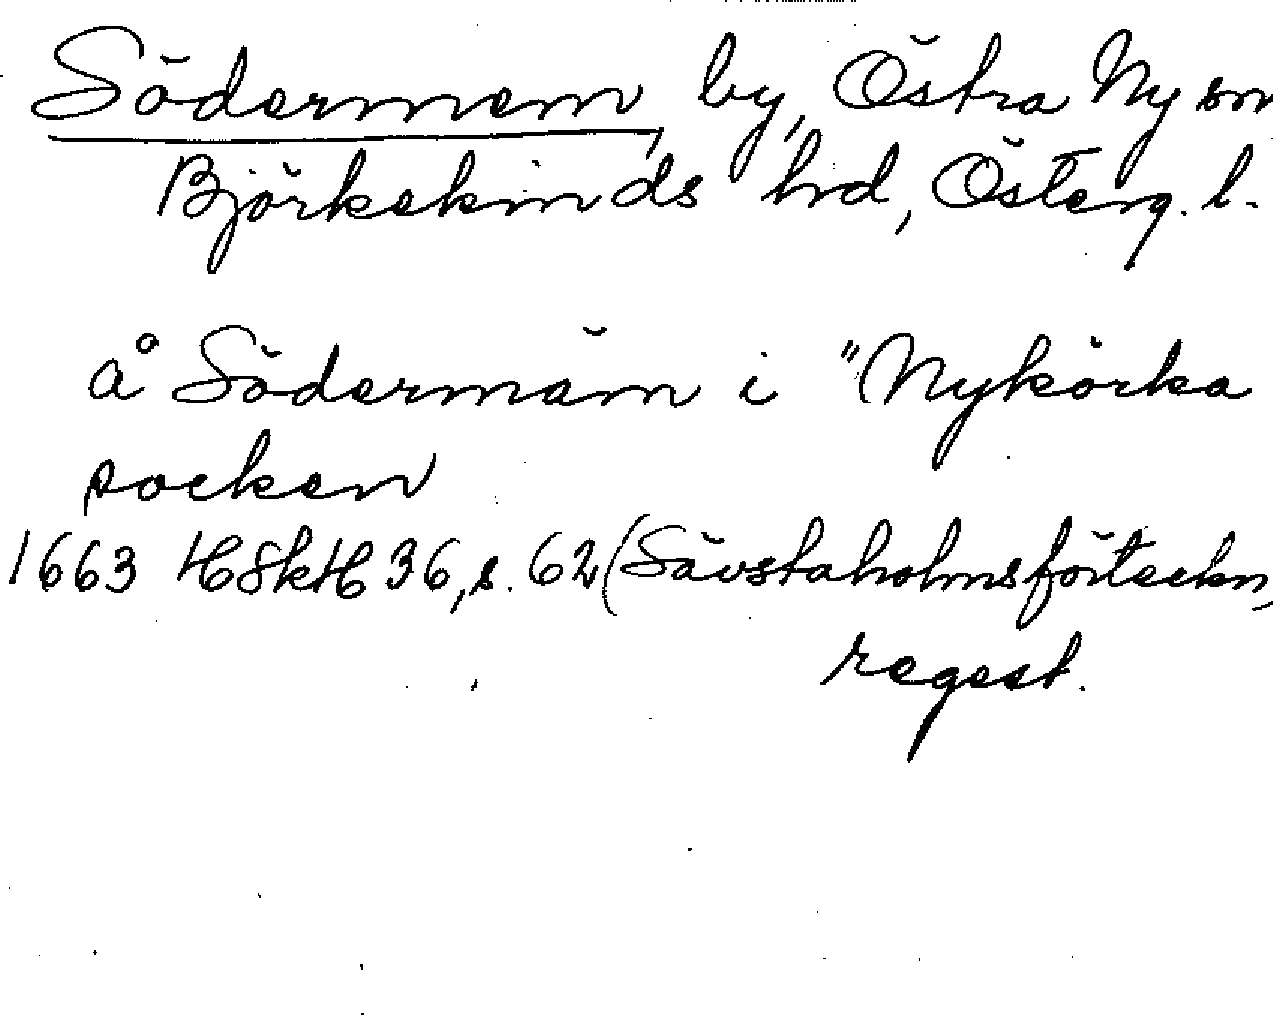 Södermem, by, Östra Ny sn
Björkekinds hd, Österg. l.
å Södermäm i "Nykörka
socken
1663 HSkH 36, s. 62 (Sävstaholmsförteckn,
regest.